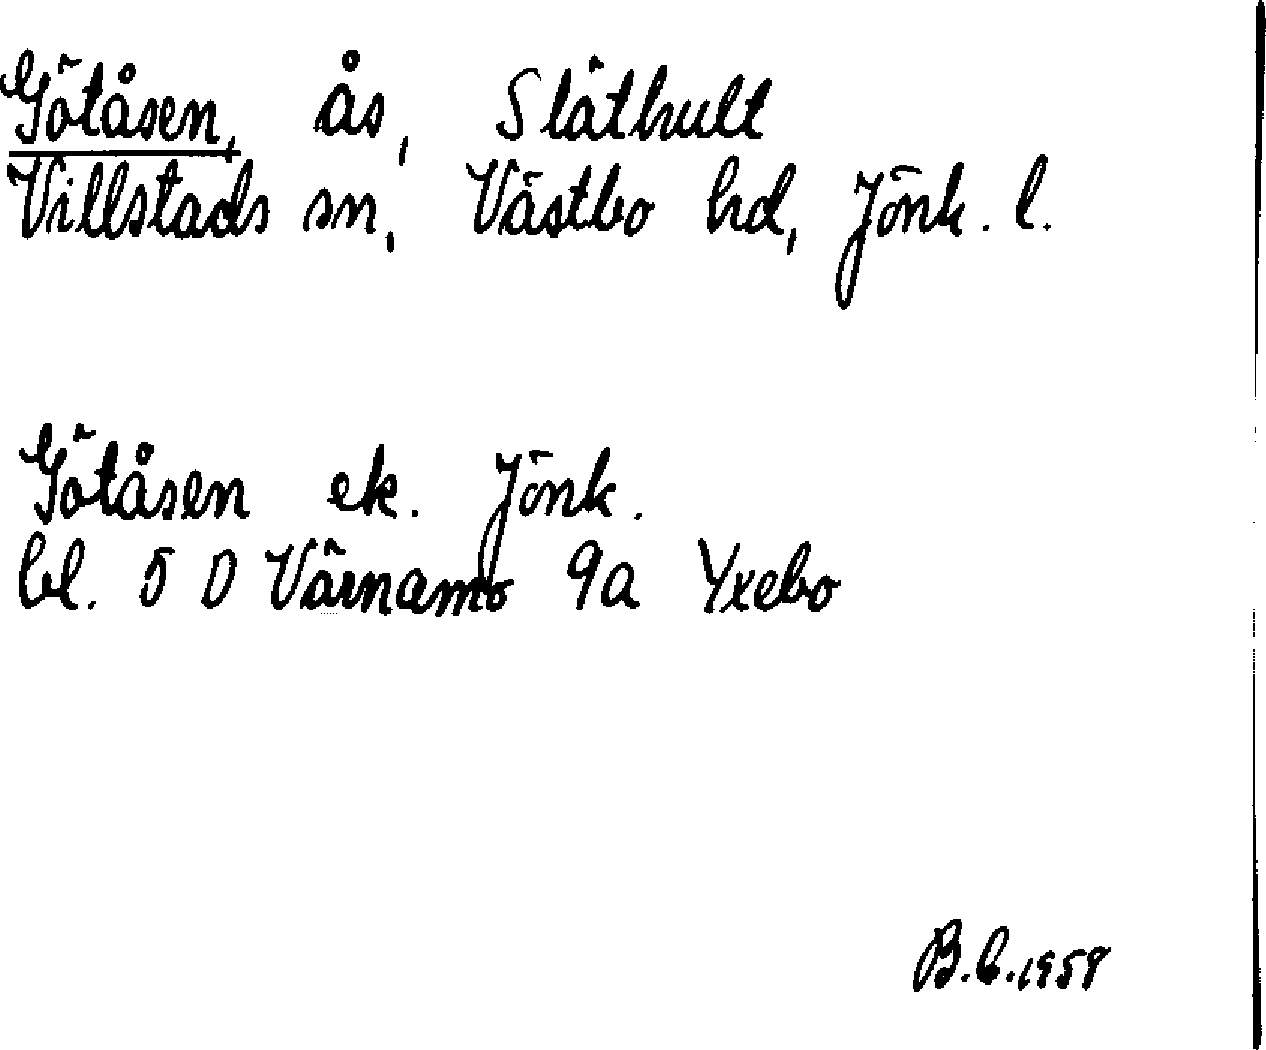 Götåsen, ås, Släthult
Villstads sn, Västbo hd, Jönk. l.
Götåsen ek. Jönk.
bl. 5 D Värnamo 9a Yxebo
B.C. 1958